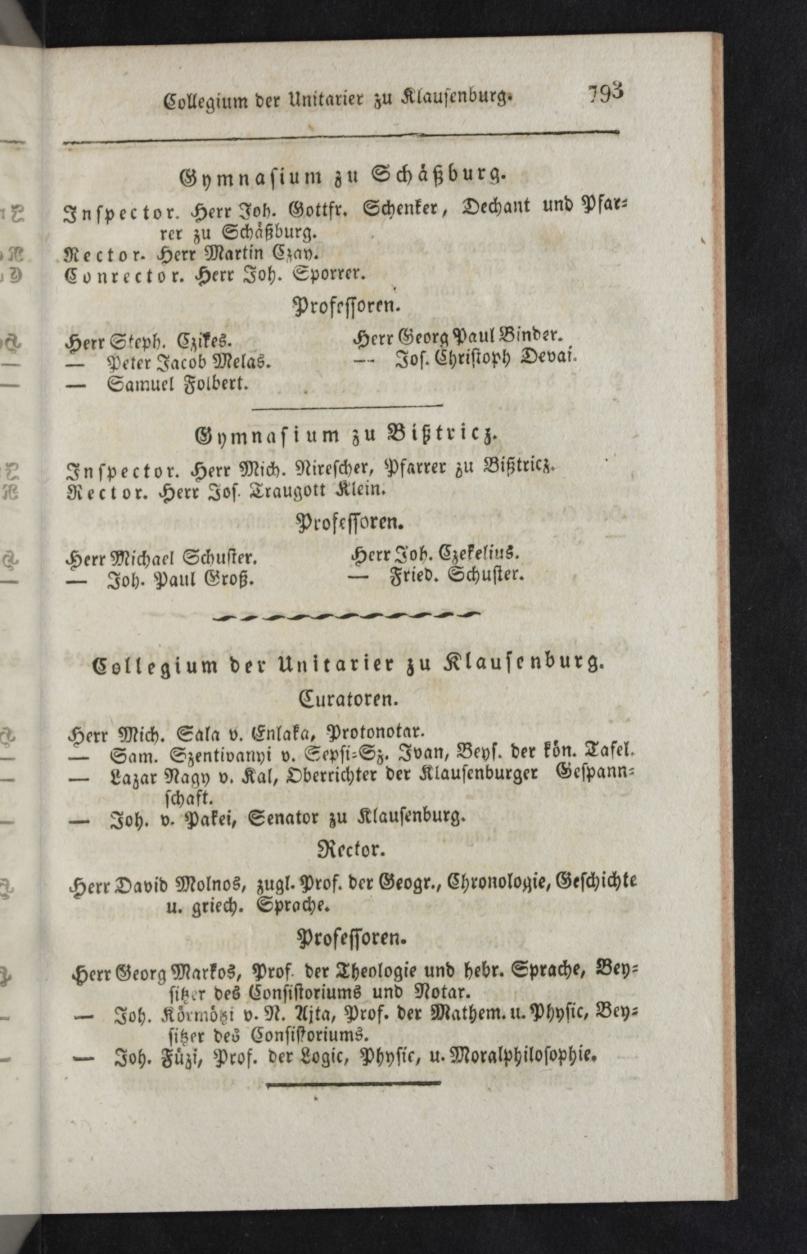 Collegium der Unitarier zu Klausenburg. 793
Gymnasium zu Schäßburg.
Inspector. Herr Joh. Gottfr. Schenker, Dechant und Pfar-
rer zu Schäßburg.
Rector. Herr Martin Czay.
Conrector. Herr Joh. Sporrer.
Professoren.
Herr Steph. Czikes. Herr Georg Paul Binder.
— Peter Jacob Melas. — Jos. Christoph Devai.
— Samuel Folbert.
Gymnasium zu Bißtricz.
Inspector. Herr Mich. Nirescher, Pfarrer zu Bißtricz.
Rector. Herr Jos. Traugott Klein.
Professoren.
Herr Michael Schuster. Herr Joh. Czekelius.
— Joh. Paul Groß. — Fried. Schuster.
Collegium der Unitarier zu Klausenburg.
Curatoren.
Herr Mich. Sala v. Enlaka, Protonotar.
— Sam. Szentivanyi v. Sepsi-Sz. Ivan, Beys. der kön. Tafel.
— Lazar Nagy v. Kal, Oberrichter der Klausenburger Gespann-
schaft.
— Joh. v. Pakei, Senator zu Klausenburg.
Rector.
Herr David Molnos, zugl. Prof. der Geogr., Chronologie, Geschichte
u. griech. Sprache.
Professoren.
Herr Georg Markos, Prof. der Theologie und hebr. Sprache, Bey-
sitzer des Consistoriums und Notar.
— Joh. Körmötzi v. N. Ajta, Prof. der Mathem. u. Physic, Bey-
sitzer des Consistoriums.
— Joh. Füzi, Prof. der Logic, Physic, u. Moralphilosophie.